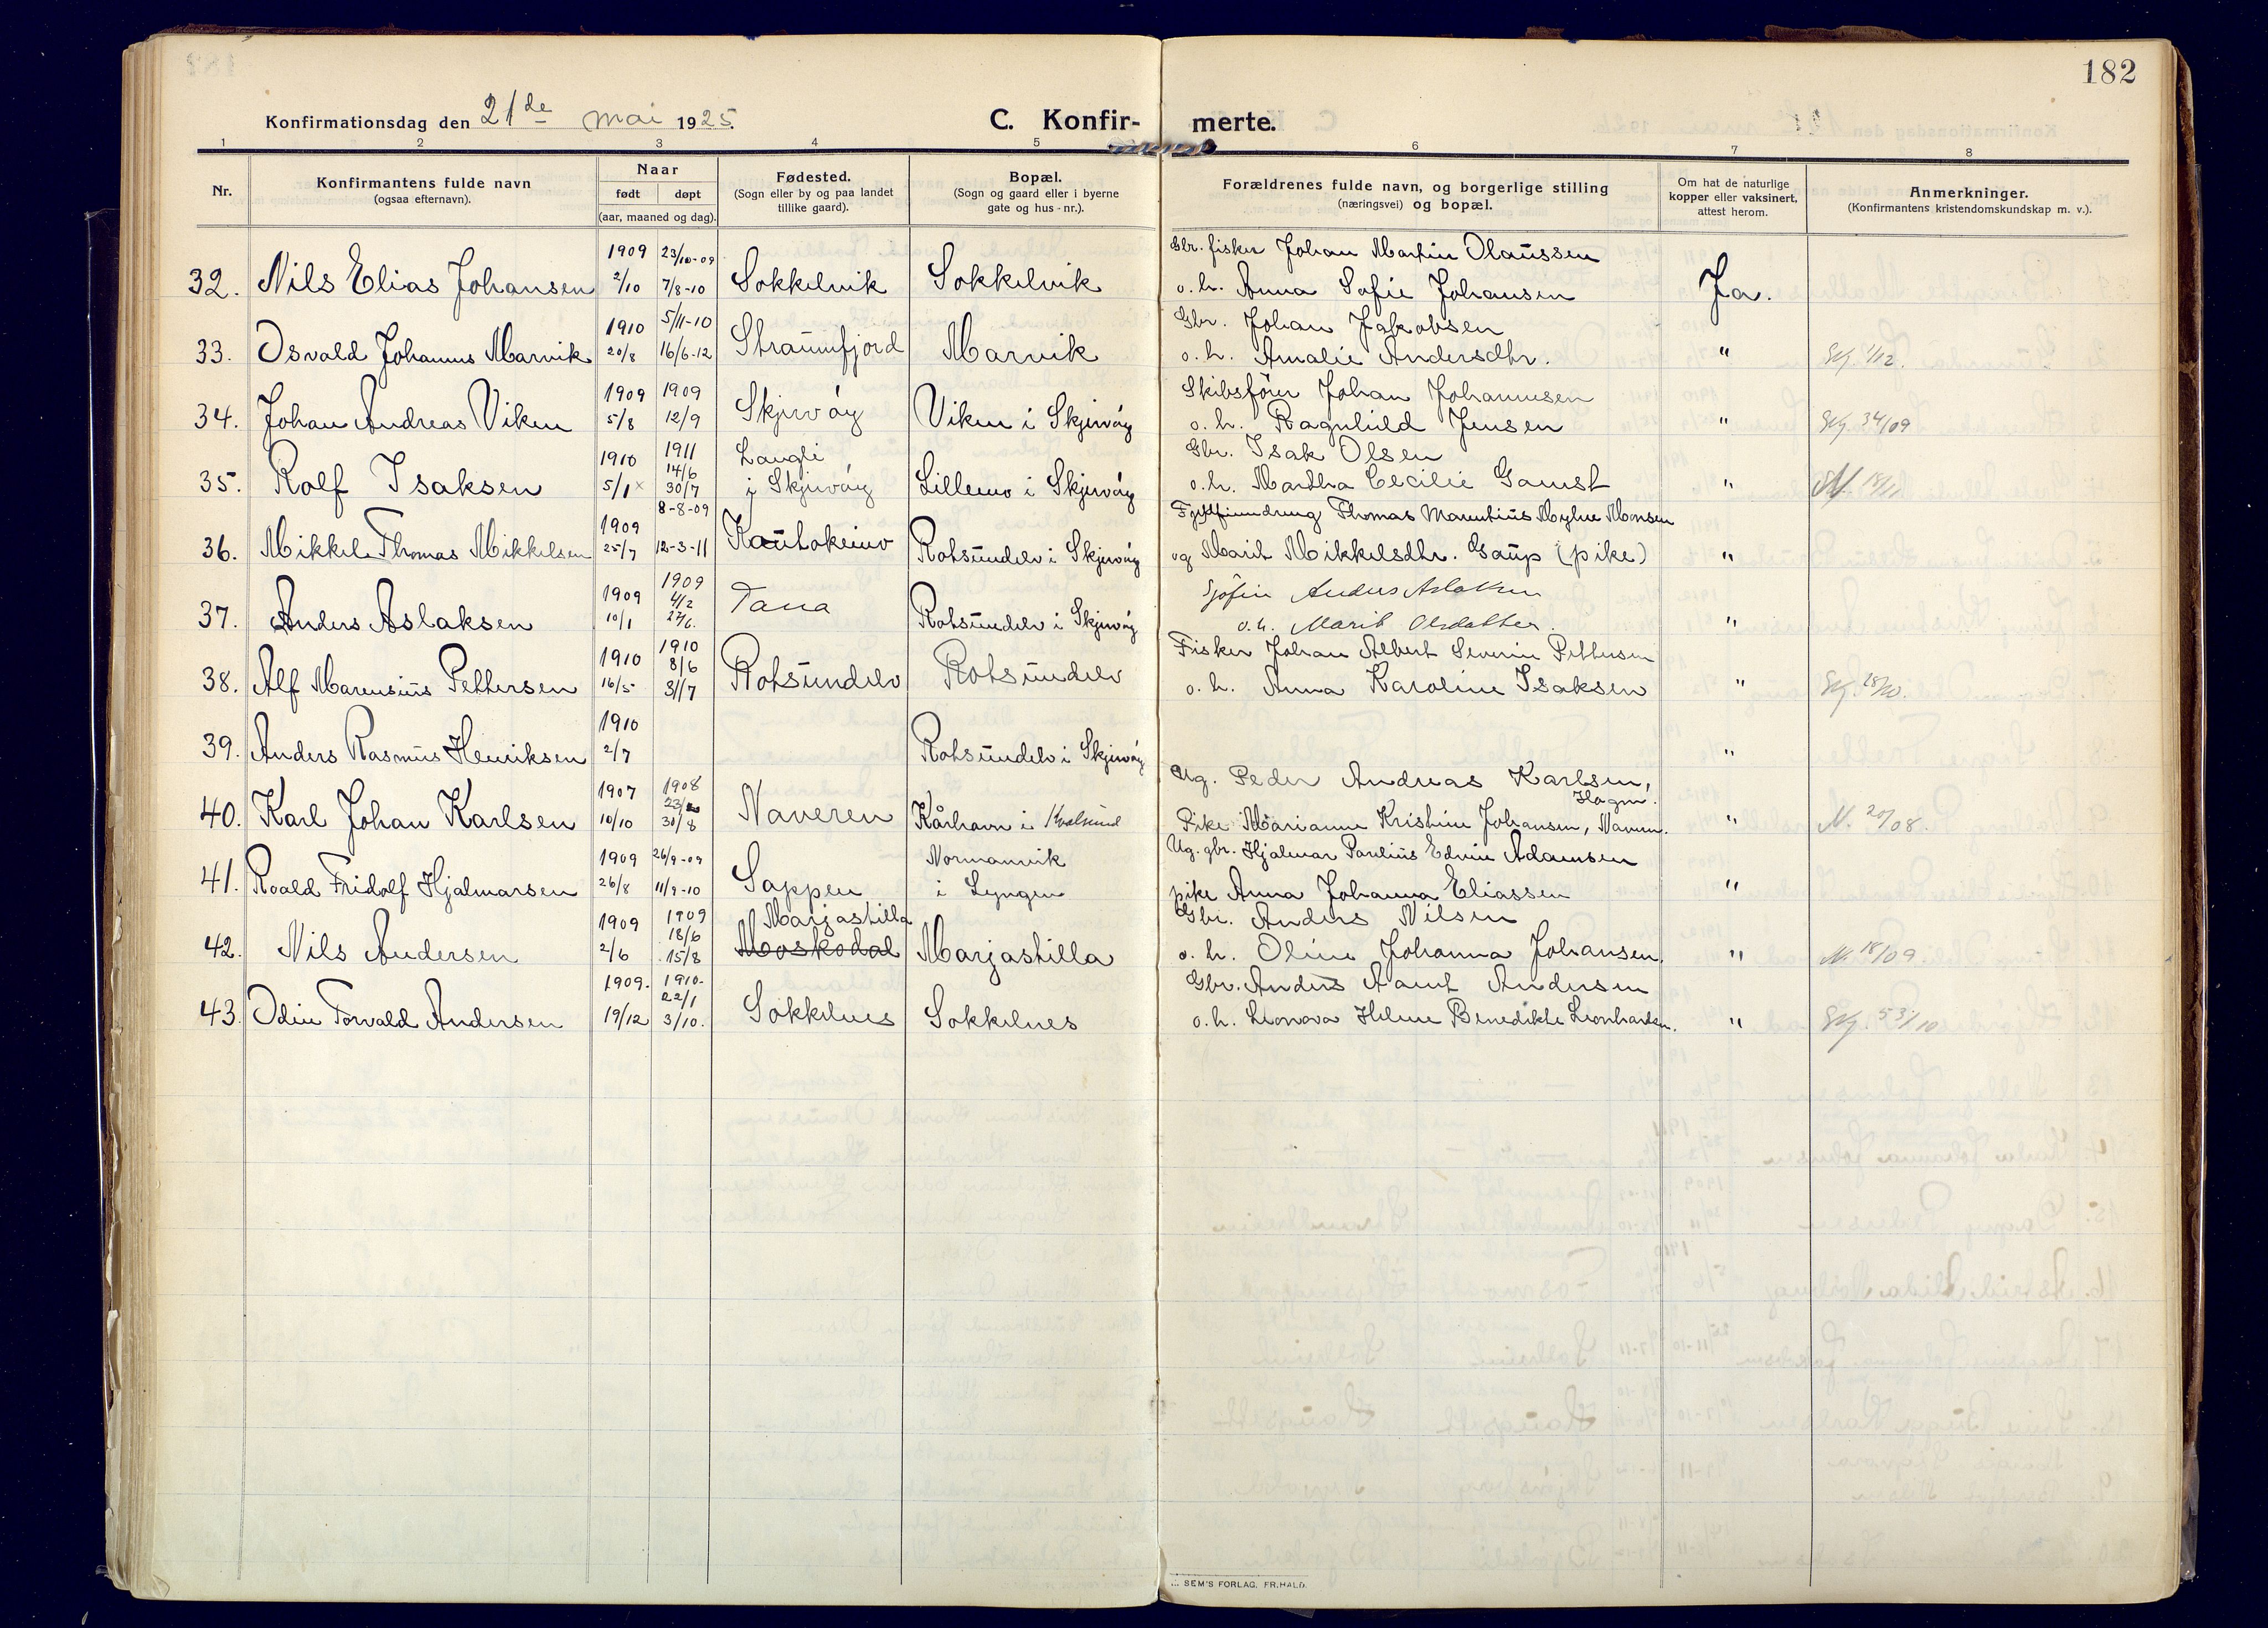 182
Konfirmationsdag den 21de mai 1925.
C. Konfirmerte.
1 2 3 4 5 6 7 8
Nr.
Konfirmantens fulde navn
(ogsaa efternavn).
Naar
født døpt
(aar, maaned og dag).
Fødested.
(Sogn eller by og paa landet
tillike gaard).
Bopæl.
(Sogn og gaard eller i byerne
gate og hus-nr.).
Forældrenes fulde navn, og borgerlige stilling
(næringsvei) og bopæl.
Om hat de naturlige
kopper eller vaksinert,
attest herom.
Anmerkninger.
(Konfirmantens kristendomskundskap m. v.).
1909 23/10-09 Gbr. fisker Johan Martin Olaussen
32. Nils Elias Johansen 2/10 7/8-10 Sokkelvik Sokkelvik o. h. Anna Sofie Johansen Ja.
1910 5/11-10 Gbr. Johan Jakobsen
33. Osvald Johannes Marvik 20/8 16/6-12 Straumfjord Marvik o. h. Amalie Andersdtr. "
1909 1909 Skibsfører Johan Johannesen
34. Johan Andreas Viken 5/8 12/9 Skjervøy Viken i Skjervøy o. h. Ragnhild Jensen " 34/09
1910 1911 14/6 Langli Gbr. Isak Olsen
35. Rolf Isaksen 5/1 x 30/7 i Skjervøy Lillemo i Skjervøy o. h. Martha Cecilie Gamst "
1909 8-8-09 Thomas Marentius Monsen
36. Mikkel Thomas Mikkelsen 25/7 12-3-11 Kautokeino Rotsundelv i Skjervøy og Marit Mikkelsdtr. Gaup (pike) "
1909 1909 4/2 Anders Aslaksen
37. Anders Aslaksen 10/1 27/6. Tana Rotsundelv i Skjervøy o. h. Marit Olsdatter. "
1910 1910 8/6 Fisker Johan Albert Severin Pettersen
38. Alf Marensius Pettersen 16/5 31/7 Rotsundelv Rotsundelv o. h. Anna Karoline Isaksen "
1910
39. Anders Rasmus Henriksen 2/7 Rotsundelv i Skjervøy "
1907 1908 Ug. Peder Andreas Karlsen,
40. Karl Johan Karlsen 10/10 30/8 Naveren Kårhavn i Kvalsund Pike Marianne Kristine Johansen, "  N. 20/08.
1909 26/9-09 Normannvik Ug. gbr. Hjalmar Paulius Edvin Adamsen
41. Roald Fridolf Hjalmarsen 26/8 11/9-10 Sappen i Lyngen pike Anna Johanna Eliassen "
1909 1909 18/6 Marjastilla Gbr. Anders Nilsen
42. Nils Andersen 2/6 15/8 Moskodal Marjastilla o. h. Oline Johanna Johansen. " N. 18/09.
1909. 1910. 22/1 Gbr. Anders Aamt Andersen
43. Odin Torvald Andersen 19/12 3/10. Sokkelnes Sokkelnes o. h. Leonora Helene Benedikte Leonhardsen. " 53/10
SEM'S FORLAG, FR.HALD.